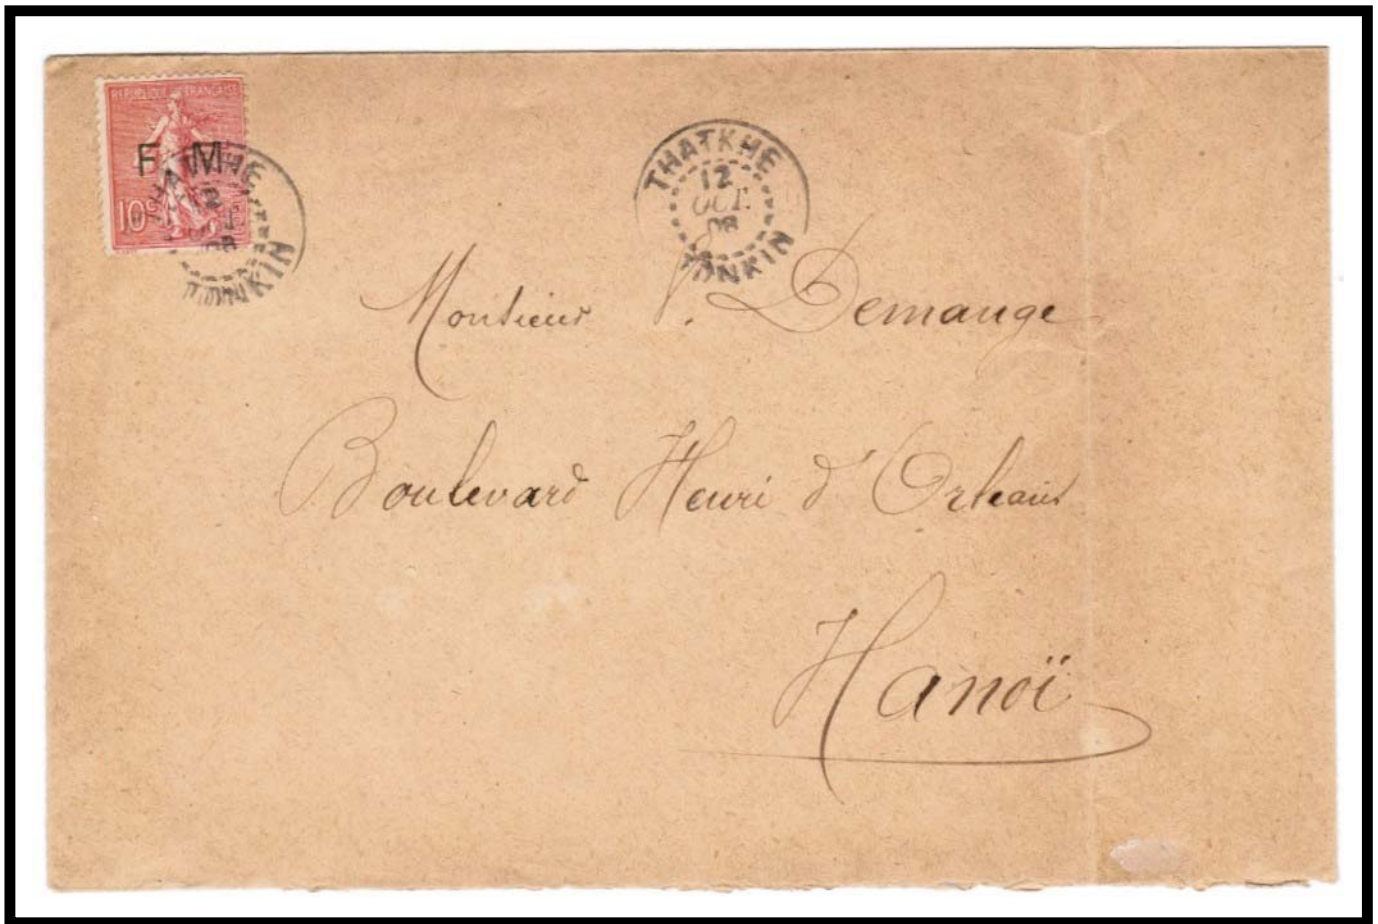 REPUBLIQUE FRANÇAISE
F M
10c
THATKHE
12
OCT.
08
TONKIN
THATKHE
12
OCT.
08
TONKIN
Monsieur V. Demange
Boulevard Henri d'Orléans
Hanoï